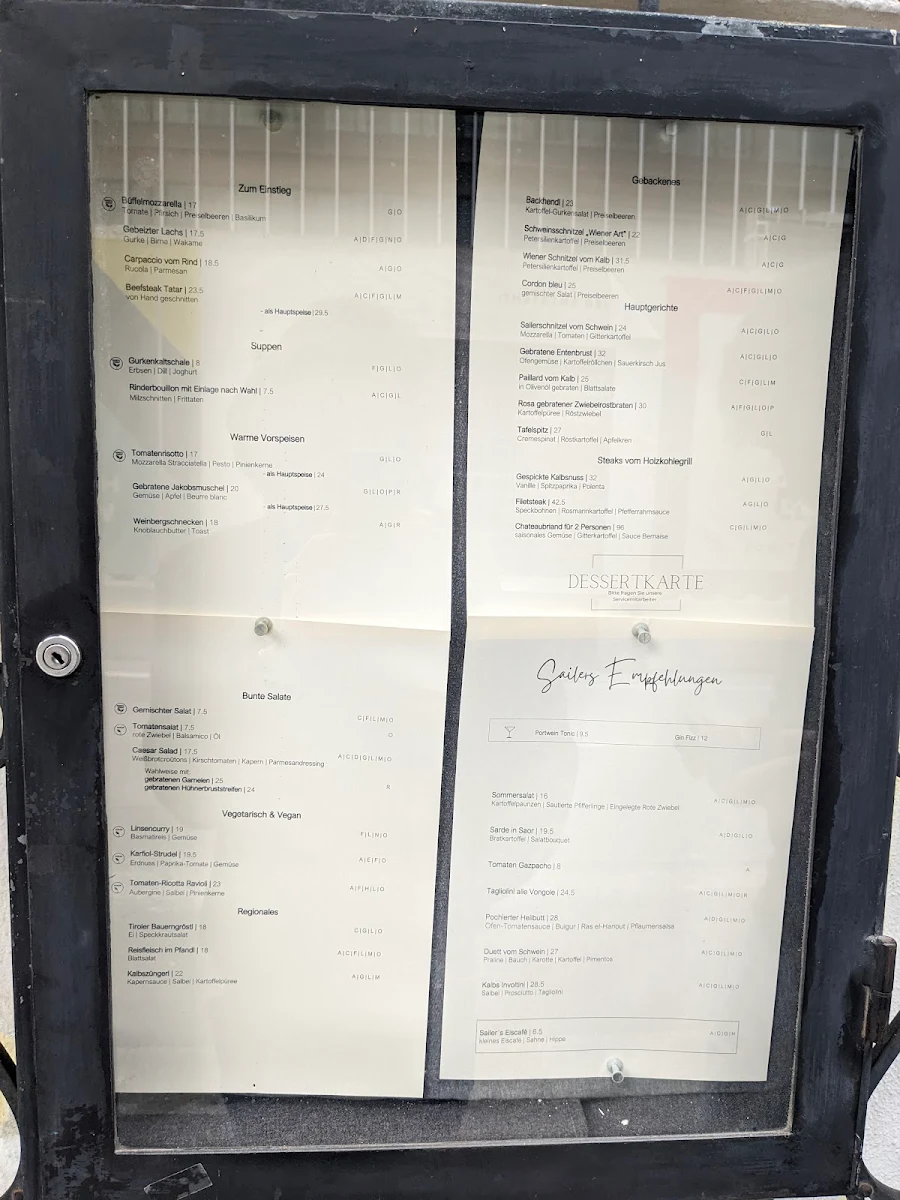 Zum Einstieg
Büffelmozzarella | 17
Tomate | Pfirsich | Preiselbeeren | Basilikum
G | O
Gebeizter Lachs | 17,5
Gurke | Birne | Wakame
A | D | F | G | N | O
Carpaccio vom Rind | 18,5
Rucola | Parmesan
A | G | O
Beefsteak Tatar | 23,5
von Hand geschnitten
A | C | F | G | L | M
- als Hauptspeise | 29,5
Suppen
Gurkenkaltschale | 8
Erbsen | Dill | Joghurt
F | G | L | O
Rinderbouillon mit Einlage nach Wahl | 7,5
Milzschnitten | Frittaten
A | C | G | L
Warme Vorspeisen
Tomatenrisotto | 17
Mozzarella Stracciatella | Pesto | Pinienkerne
G | L | O
- als Hauptspeise | 24
Gebratene Jakobsmuschel | 20
Gemüse | Apfel | Beurre blanc
G | L | O | P | R
- als Hauptspeise | 27,5
Weinbergschnecken | 18
Knoblauchbutter | Toast
A | G | R
Bunte Salate
Gemischter Salat | 7,5
C | F | L | M | O
Tomatensalat | 7,5
rote Zwiebel | Balsamico | Öl
O
Caesar Salad | 17,5
Weißbrotcroûtons | Kirschtomaten | Kapern | Parmesandressing
A | C | D | G | L | M | O
Wahlweise mit:
gebratenen Garnelen | 25
gebratenen Hühnerbruststreifen | 24
R
Vegetarisch & Vegan
Linsencurry | 19
Basmatireis | Gemüse
F | L | N | O
Karfiol-Strudel | 19,5
Erdnuss | Paprika-Tomate | Gemüse
A | E | F | O
Tomaten-Ricotta Ravioli | 23
Aubergine | Salbei | Pinienkerne
A | F | H | L | O
Regionales
Tiroler Bauerngröstl | 18
Ei | Speckkrautsalat
C | G | L | O
Reisfleisch im Pfandl | 18
Blattsalat
A | C | F | L | M | O
Kalbszüngerl | 22
Kapernsauce | Salbei | Kartoffelpüree
A | G | L | M
Gebackenes
Backhendl | 23
Kartoffel-Gurkensalat | Preiselbeeren
A | C | G | L | M | O
Schweinsschnitzel „Wiener Art“ | 22
Petersilienkartoffel | Preiselbeeren
A | C | G
Wiener Schnitzel vom Kalb | 31,5
Petersilienkartoffel | Preiselbeeren
A | C | G
Cordon bleu | 25
gemischter Salat | Preiselbeeren
A | C | F | G | L | M | O
Hauptgerichte
Sailerschnitzel vom Schwein | 24
Mozzarella | Tomaten | Gitterkartoffel
A | C | G | L | O
Gebratene Entenbrust | 32
Ofengemüse | Kartoffelröllchen | Sauerkirsch Jus
A | C | G | L | O
Paillard vom Kalb | 25
in Olivenöl gebraten | Blattsalate
C | F | G | L | M
Rosa gebratener Zwiebelrostbraten | 30
Kartoffelpüree | Röstzwiebel
A | F | G | L | O | P
Tafelspitz | 27
Cremespinat | Röstkartoffel | Apfelkren
G | L
Steaks vom Holzkohlegrill
Gespickte Kalbsnuss | 32
Vanille | Spitzpaprika | Polenta
A | G | L | O
Filetsteak | 42,5
Speckbohnen | Rosmarinkartoffel | Pfefferrahmsauce
A G | L | O
Chateaubriand für 2 Personen | 96
saisonales Gemüse | Gitterkartoffel | Sauce Bernaise
C | G | L | M | O
DESSERTKARTE
Bitte fragen Sie unsere
Servicemitarbeiter
Sailers Empfehlungen
Portwein Tonic | 9,5
Gin Fizz | 12
Sommersalat | 16
Kartoffelpaunzen | Sautierte Pfifferlinge | Eingelegte Rote Zwiebel
A | C | G | L | M | O
Sarde in Saor | 19,5
Bratkartoffel | Salatbouquet
A | D | G | L | O
Tomaten Gazpacho | 8
A
Tagliolini alle Vongole | 24,5
A | C | G | L | M | O | R
Pochierter Heilbutt | 28
Ofen-Tomatensauce | Bulgur | Ras el-Hanout | Pflaumensalsa
A | D | G | L | M | O
Duett vom Schwein | 27
Praline | Bauch | Karotte | Kartoffel | Pimentos
A | C | G | L | M | O
Kalbs Involtini | 28,5
Salbei | Prosciutto | Tagliolini
A | C | G | L | M | O
Sailer's Eiscafé | 6,5
kleines Eiscafé | Sahne | Hippe
A | C | G | H